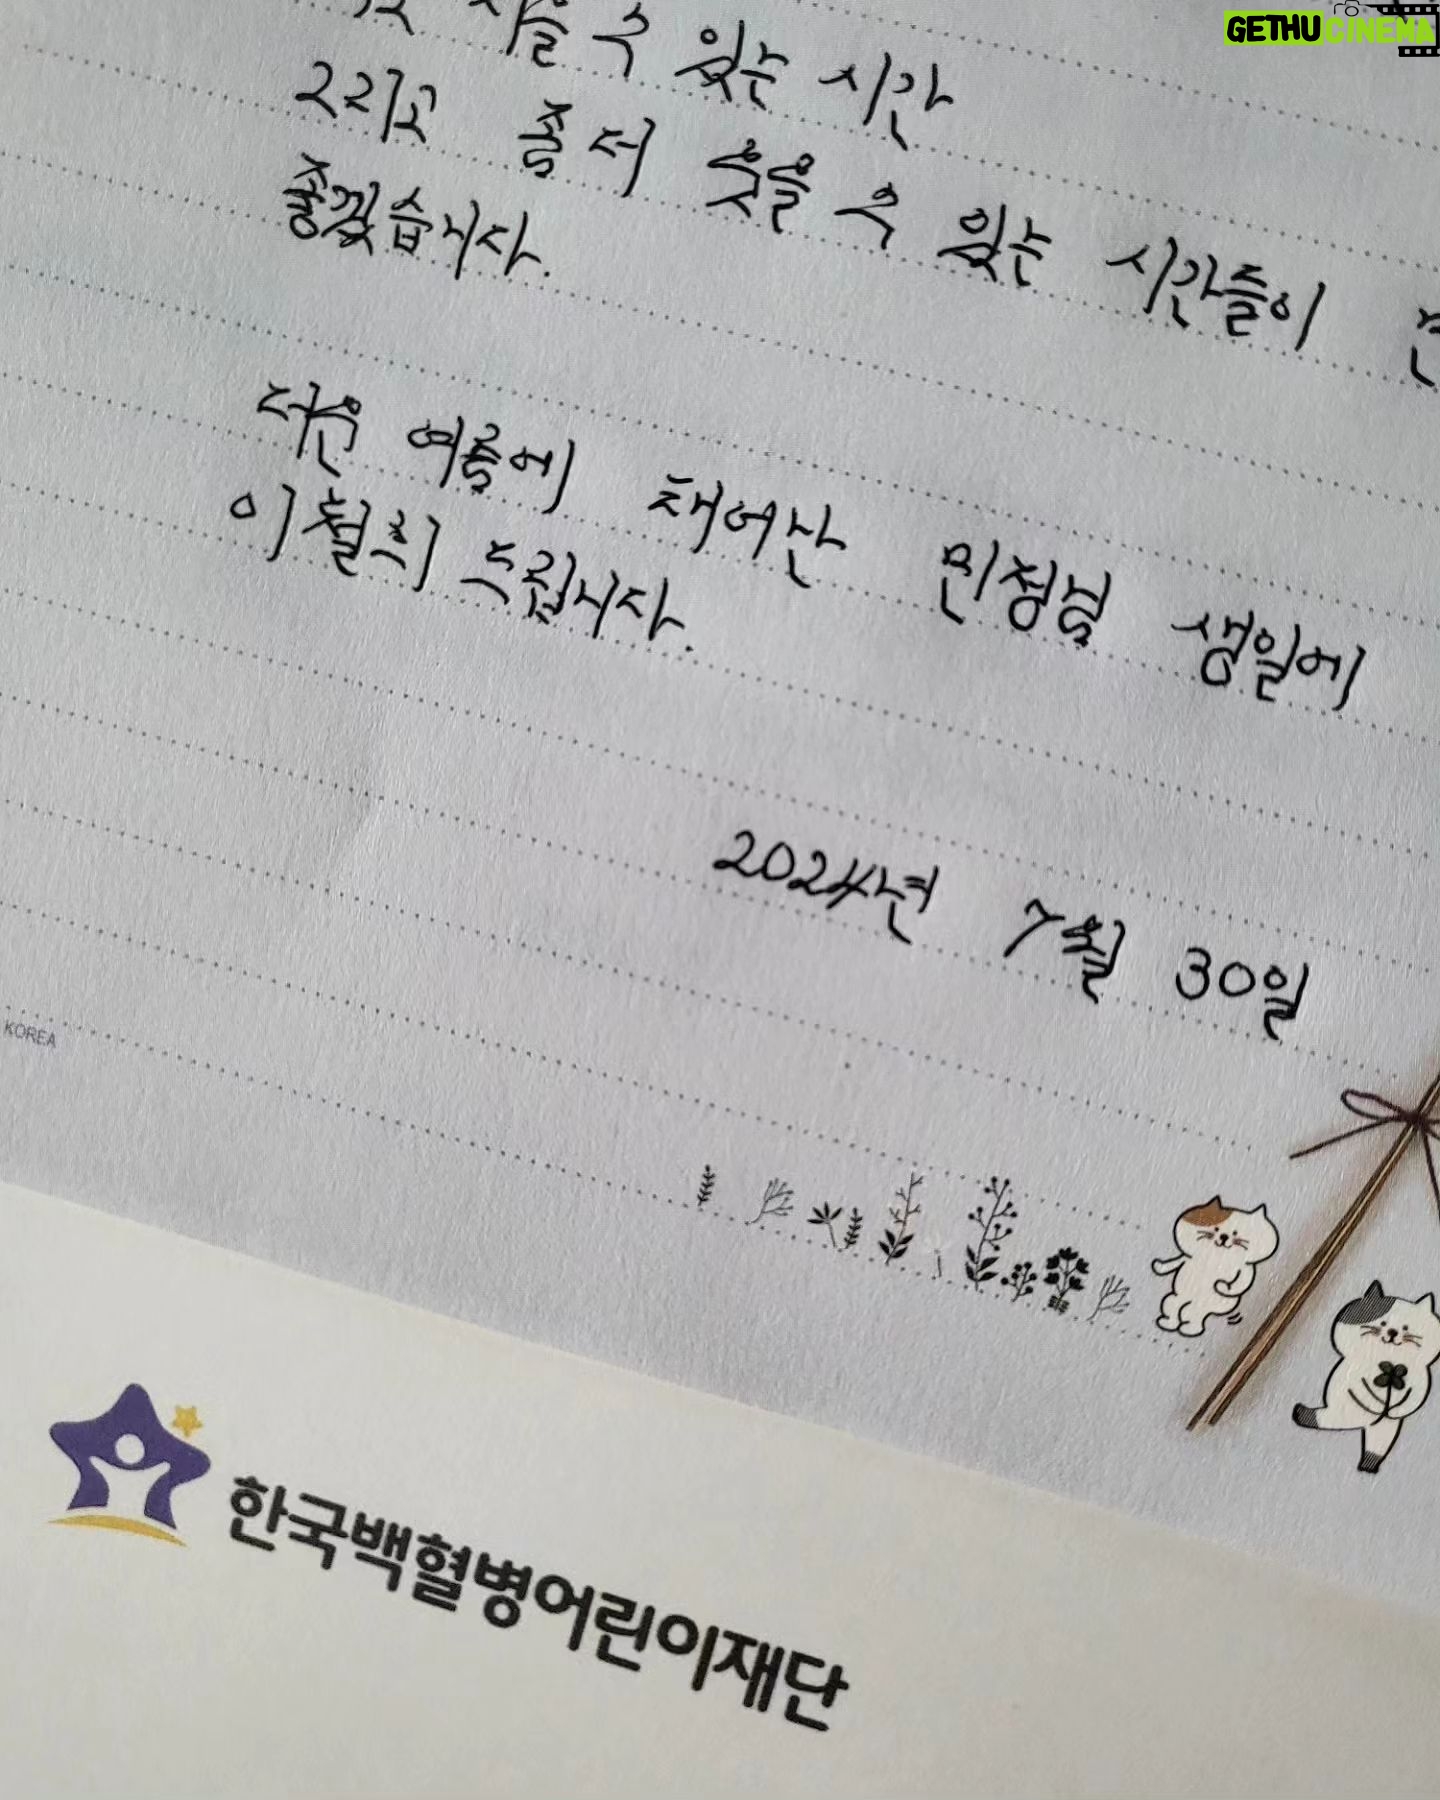 GETHUCINEMA
수 있는 시간
그리고 좀 더 웃을 수 있는 시간들이
좋겠습니다.
더운 여름에 태어난 민정님 생일에
이철희 드립니다.
2024년 7월 30일
KOREA
한국백혈병어린이재단